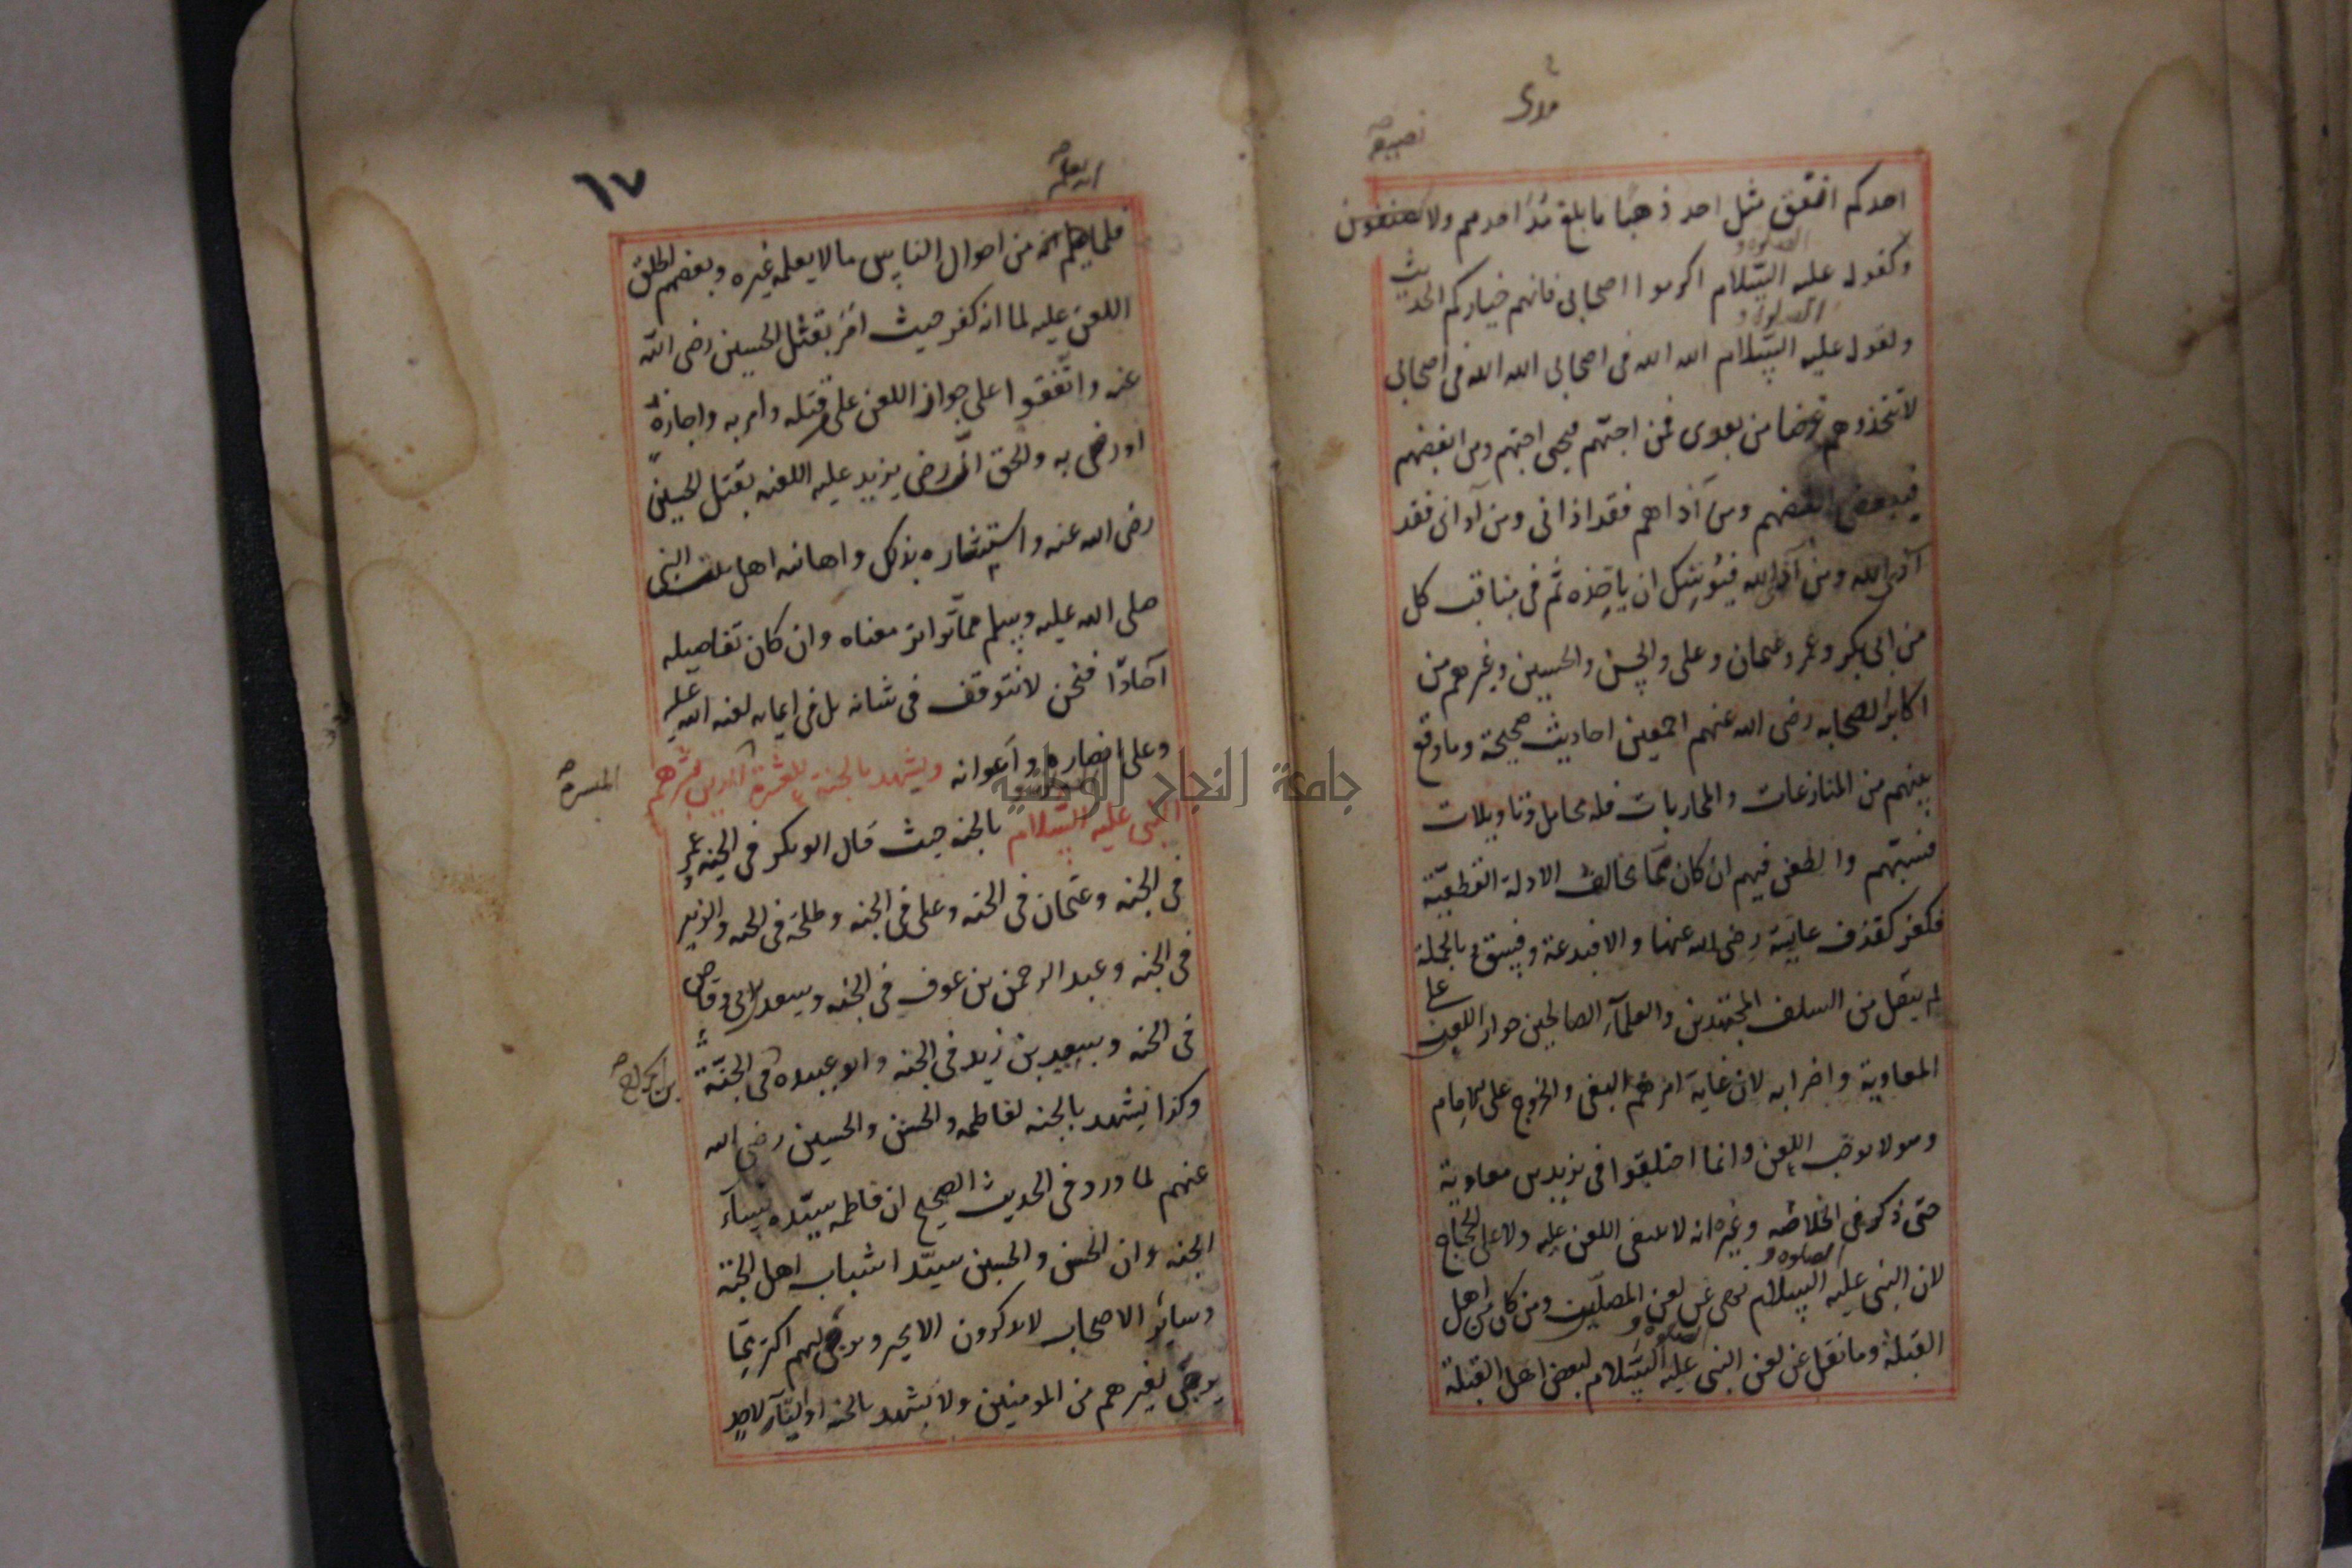 مدى
نصيفه
احدكم انفق مثل احد ذهبا ما بلغ مد احدهم ولا
وكقوله عليه الصلوة و السلام اكرموا اصحابى فانهم خياركم الحديث
ولقوله عليه الصلوة و السلام الله الله فى اصحابى الله الله فى اصحابى
لا تتخذوهم غرضا من بعدى فمن احبهم فبحبى احبهم ومن ابغضهم
فببغضى ابغضهم ومن آذاهم فقد اذانى ومن آذانى فقد
آذى الله ومن آذى الله فيوشك ان ياخذه ثم فى مناقب كل
من ابى بكر وعمر وعثمان وعلى والحسن والحسين وغيرهم من
اكابر الصحابه رضى الله عنهم اجمعين احاديث صحيحة وما وقع
بينهم من المنازعات والمحاربات فله محامل وتاويلات
فسبهم والطعن فيهم ان كان مما يخالف الادلة القطعية
فكفر كقذف عايشة رضى الله عنها والا فبدعة وفسق وبالجملة
لم ينقل من السلف المجتهدين والعلمآء الصالحين جواز اللعن على
المعاوية واحزابه لان غاية امرهم البغى والخروج على الامام
وهو لا يوجب اللعن وانما اختلفوا فى يزيد بن معاوية
حتى ذكر فى الخلاصه وغيره انه لا ينبغى اللعن عليه ولا على الحجاج
لان النبى عليه الصلوه و السلام نهى عن لعن المصلين ومن كان من اهل
القبلة وما نقل عن لعن النبى عليه الصلوة و السلام لبعض اهل القبلة
٦٧
انه يعلم
فلما من احوال الناس ما لا يعلمه غيره وبعضهم اطلق
اللعن عليه لما انه كفر حيث امر بقتل الحسين رضى الله
عنه واتفقوا على جواز اللعن على قتله وامر به واجازه
او رضى به والحق ان رضى يزيد عليه اللعنه بقتل الحسين
رضى الله عنه واستبشاره بذلك واهانه اهل بيت النبى
صلى الله عليه وسلم مما تواتر معناه وان كان تفاصيله
آحادا فنحن لا نتوقف فى شانه بل فى ايمانه لعنه الله عليه
وعلى انصاره وآعوانه ويشهد بالجنة للعشرة الذين بشرهم
المبشرة
النبى عليه السلام بالجنه حيث قال ابو بكر فى الجنه وعمر
فى الجنه وعثمان فى الجنه وعلى فى الجنه وطلحة فى الجنه والزبير
فى الجنه وعبد الرحمن بن عوف فى الجنه وسعد بن ابى وقاص
فى الجنه وسعيد بن زيد فى الجنه وابو عبيده فى الجنة
بن الجراح
وكذا نشهد بالجنه لفاطمه والحسن والحسين رضى الله
عنهم لما ورد فى الحديث الصحيح ان فاطمه سيده نسآء
الجنه وان الحسن والحسين سيدا شباب اهل الجنة
وسائر الاصحاب لا يذكرون الا بخير ويرجى لهم اكثر مما
يرجى لغيرهم من المومنين ولا نشهد بالجنه او النار لاحد
جامعة النجاح الوطنية